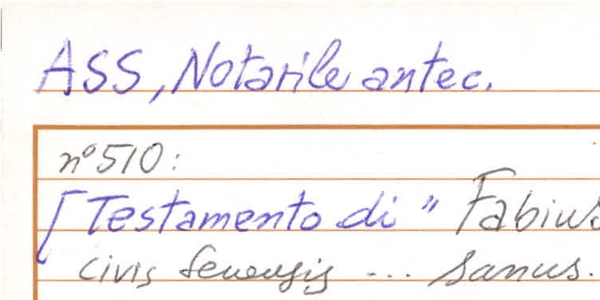 ASS, Notarile antec.
n° 510:
[Testamento di " Fabius
civis senensis ... sanus.